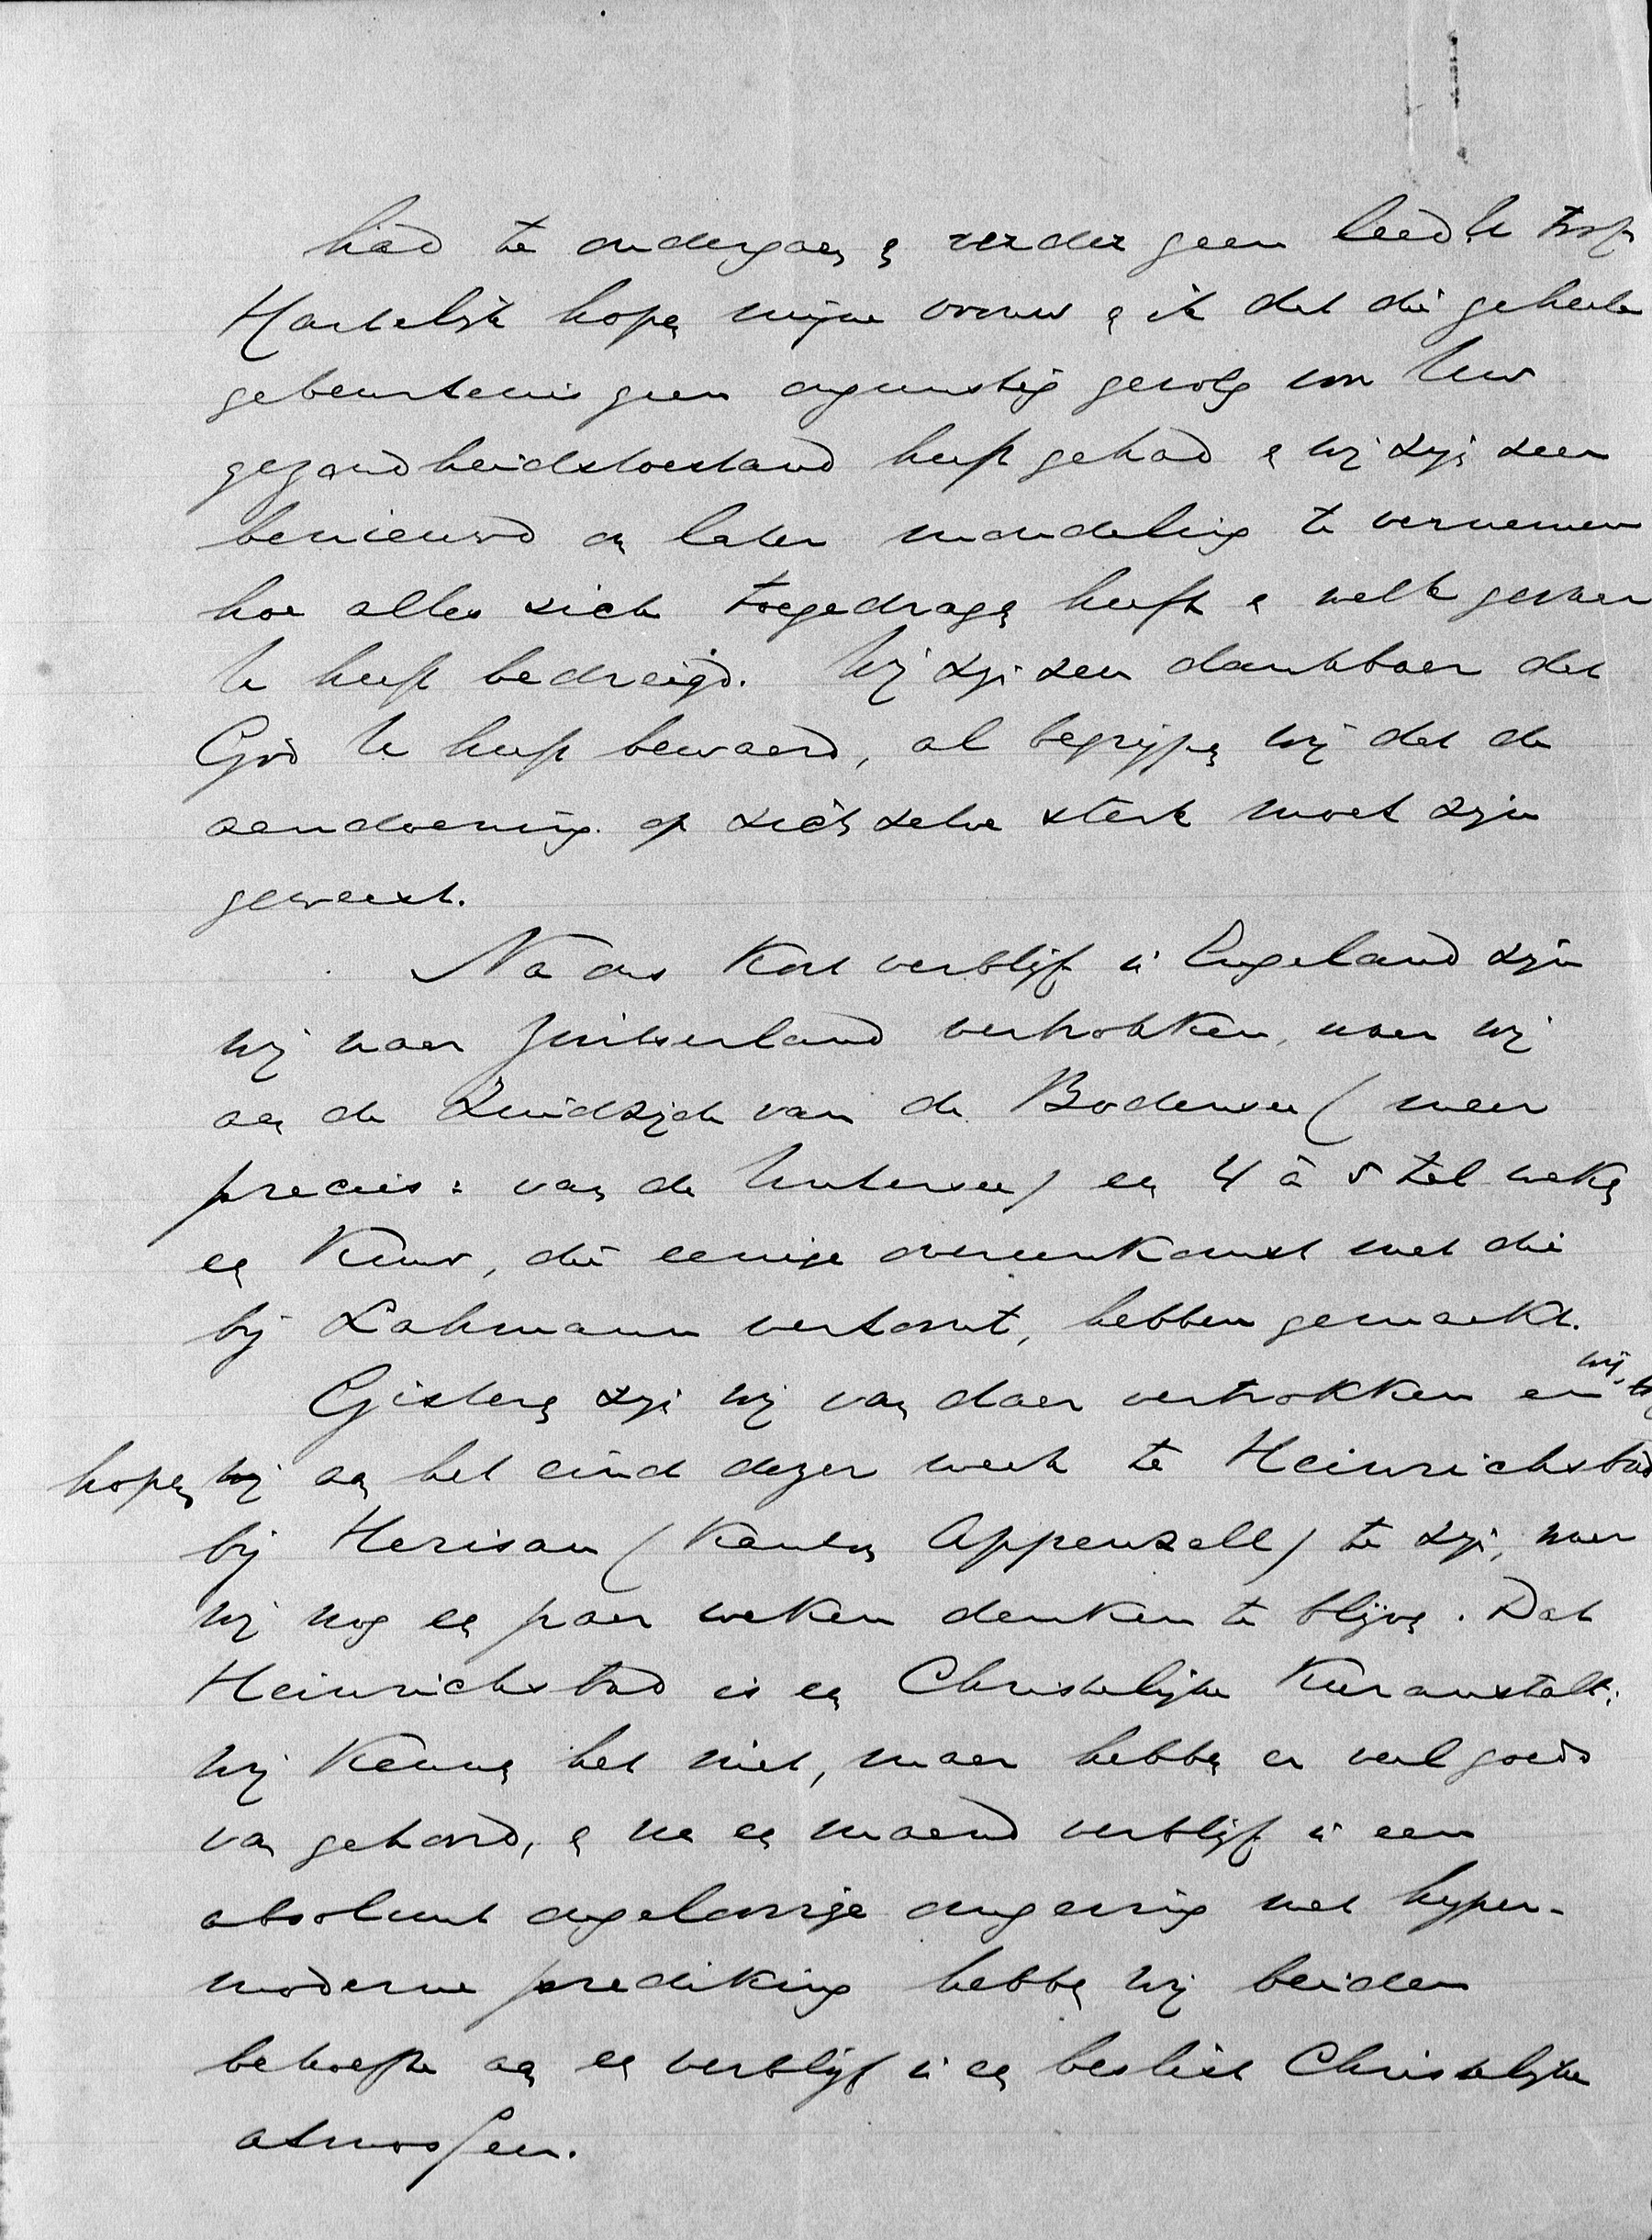 had te ondergaan en verder geen leed U trof.
Hartelijk hopen mijne vrouw en ik dat die geheele
gebeurtenis geen ongunstig gevolg voor Uw
gezondheidstoestand heeft gehad en wij zijn zeer
benieuwd om later mondeling te vernemen
hoe alles zich toegedragen heeft en welk gevaar
U heeft bedreigd. Wij zijn zeer dankbaar dat
God U heeft bewaard, al begrijpen wij dat de
aandoening op zich zelve sterk moet zijn
geweest.
Na ons kort verblijf in Engeland zijn
wij naar Zwitserland vertrokken, waar wij
aan de Zuidzijde van de Bodensee (meer
precies: van de Untersee) een 4 à 5 tal weken
een Kuur, die eenige overeenkomst met die
bij Lahmann vertoont, hebben gemaakt.
Gisteren zijn wij van daar vertrokken en wij
hopen wij aan het eind dezer week te Heinrichsbad
bij Herisau (Kanton Appenzell) te zijn, waar
wij nog een paar weken denken te blijven. Dat
Heinrichsbad is een Christelijke Kuranstalt;
wij kennen het niet, maar hebben er veel goeds
van gehoord, en na een maand verblijf in een
absoluut ongeloovige omgeving met hyper-
moderne prediking hebben wij beiden
behoefte aan een verblijf in een beslist Christelijke
atmosfeer.